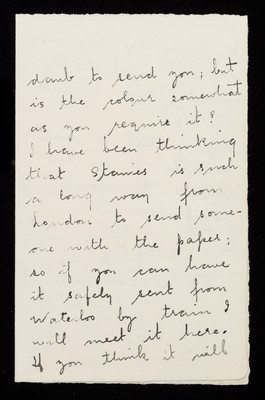 daub to send you; but
is the colour somewhat
as you require it?
I have been thinking
that Staines is such
a long way from
London to send some-
one with the paper;
so if you can have
it safely sent from
Waterloo by train I
will meet it here.
If you think it will